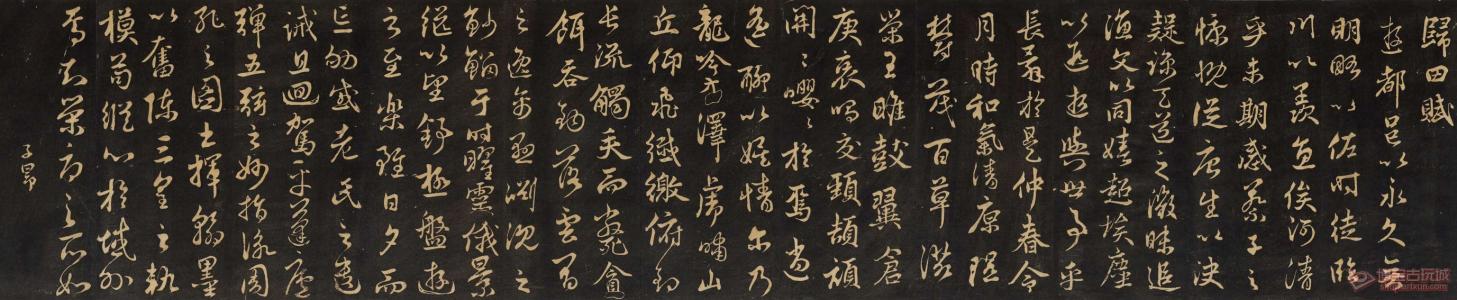 歸田賦
遊都邑以永久無
明略以佐時徒臨
川以羨魚俟河清
乎未期感蔡子之
慷慨從唐生以決
疑諒天道之微昧追
漁父以同嬉超埃塵
以遐遊與世事乎
長辭於是仲春令
月時和氣清原隰
鬱茂百草滋
榮王雎鼓翼倉
庚哀鳴交頸頡頏
關〻嚶〻於焉逍
遙聊以娛情爾乃
龍吟方澤虎嘯山
丘仰飛纖繳俯釣
長流觸矢而斃貪
餌吞鉤落雲間
之逸禽懸淵沉之
魦鰡于時曜靈俄景
繼以望舒極盤遊
之至樂雖日夕而
忘劬感老氏之遺
誡且迴駕乎蓬廬
彈五弦之妙指詠周
孔之圖書揮翰墨
以奮藻陳三皇之軌
模苟縱心於域外
焉知榮辱之所如
子昂